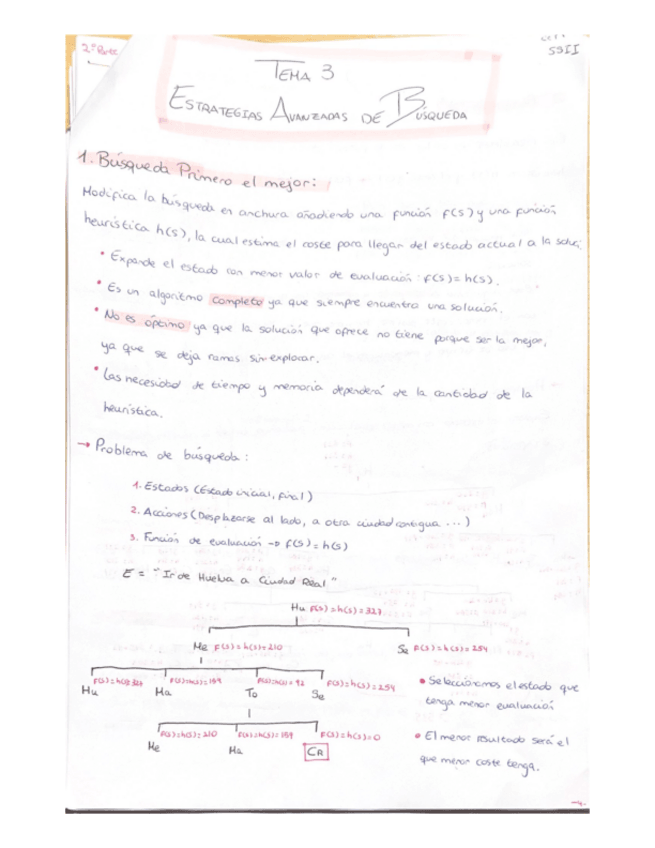 2º Parc
SSII
TEMA 3
ESTRATEGIAS AVANZADAS DE BÚSQUEDA
1. Búsqueda Primero el mejor:
Modifica la búsqueda en anchura añadiendo una función f(s) y una función
heurística h(s), la cual estima el coste para llegar del estado actual a la soluc
• Expande el estado con menor valor de evaluación: f(s) = h(s).
• Es un algoritmo completo ya que siempre encuentra una solución.
• No es óptimo ya que la solución que ofrece no tiene porque ser la mejor,
ya que se deja ramas sin explorar.
• Las necesidad de tiempo y memoria dependerá de la cantidad de la
heurística.
→ Problema de búsqueda:
1. Estados (Estado inicial, final)
2. Acciones (Desplazarse al lado, a otra ciudad contigua ...)
3. Función de evaluación → f(s) = h(s)
E = "Ir de Huelva a Ciudad Real"
Hu f(s) = h(s) = 327
Me f(s) = h(s) = 210 Se f(s) = h(s) = 254
f(s) = h(s) = 159 f(s) = h(s) = 92 f(s) = h(s) = 254
Hu Ma To Se
• Seleccionamos el estado que
tenga menor evaluación
f(s) = h(s) = 210 f(s) = h(s) = 159 f(s) = h(s) = 0
Me Ma CR
• El menor resultado será el
que menor coste tenga.